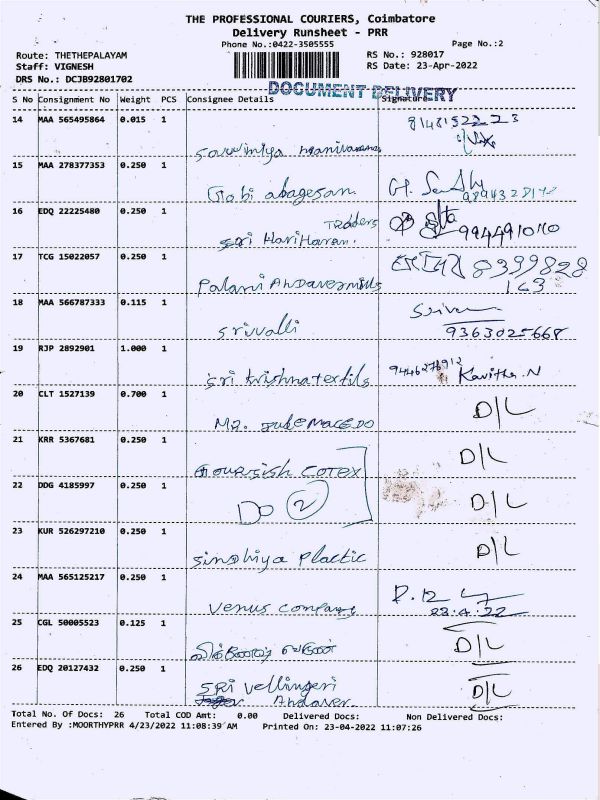 THE PROFESSIONAL COURIERS, Coimbatore
Delivery Runsheet - PRR
Phone No.:0422-3505555
Page No.:2
Route: THETHEPALAYAM
RS No.: 928017
Staff: VIGNESH
RS Date: 23-Apr-2022
DRS No.: DCJB92801702
DOCUMENT DELIVERY
S No Consignment No Weight PCS Consignee Details Signature
14 MAA 565495864 0.015 1
15 MAA 278377353 0.250 1 Gobi
16 EDQ 22225480 0.250 1 Sri Hariharan. Traders 9944910110
17 TCG 15022057 0.250 1 Palani Andavermills 8399828
163
18 MAA 566787333 0.115 1 Srivalli
9363025668
19 RJP 2892901 1.000 1 Sri krishnatextils Kavitha.N
20 CLT 1527139 0.700 1 D/L
21 KRR 5367681 0.250 1 cotex D/L
22 DDG 4185997 0.250 1 Do 2 D/L
23 KUR 526297210 0.250 1 Sindhiya Plactic D/L
24 MAA 565125217 0.250 1 Venus company
23.4.22
25 CGL 50005523 0.125 1 D/L
26 EDQ 20127432 0.250 1 SRI Vellingeri D/L
Andaver
Total No. Of Docs: 26 Total COD Amt: 0.00 Delivered Docs: Non Delivered Docs:
Entered By :MOORTHYPRR 4/23/2022 11:08:39 AM Printed On: 23-04-2022 11:07:26